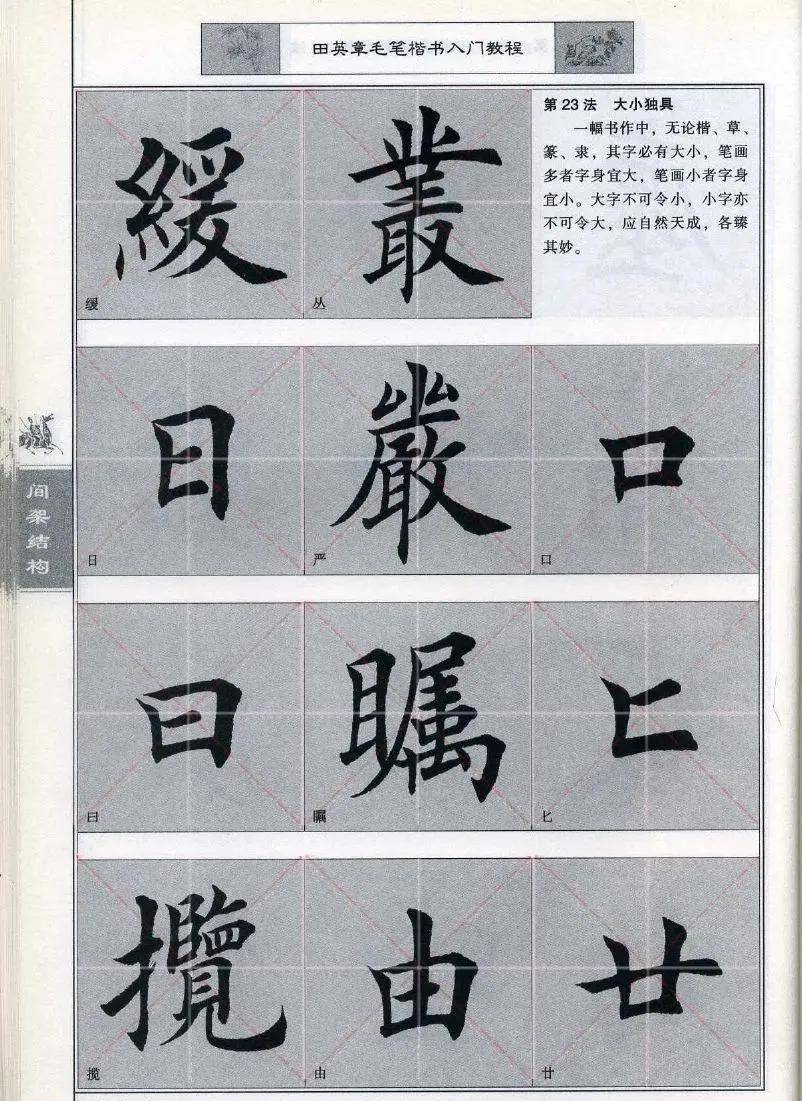 田英章毛笔楷书入门教程
緩 叢
缓 丛
第23法 大小独具
一幅书作中，无论楷、草、
篆、隶，其字必有大小，笔画
多者字身宜大，笔画小者字身
宜小。大字不可令小，小字亦
不可令大，应自然天成，各臻
其妙。
日 嚴 口
日 严 口
间架结构
曰 瞩 匕
曰 瞩 匕
攬 由 廿
揽 由 廿